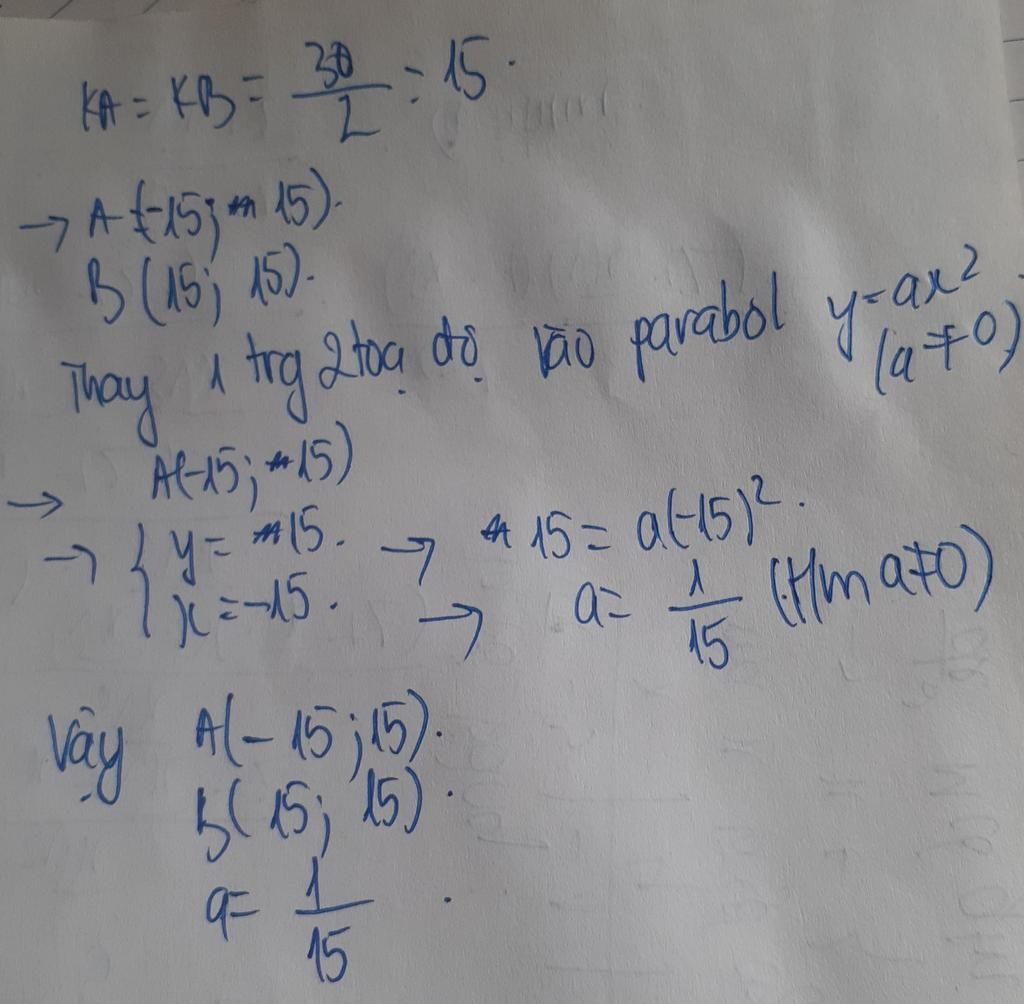 KA = KB = 30/2 = 15.
→ A(-15; 15).
B(15; 15).
Thay 1 trg 2 toạ độ vào parabol y=ax²
(a≠0)
→ A(-15; 15)
→ { y = 15. → 15 = a(-15)².
x = -15. → a = 1/15 (t/m a≠0)
Vậy A(-15; 15).
B(15; 15).
a = 1/15.